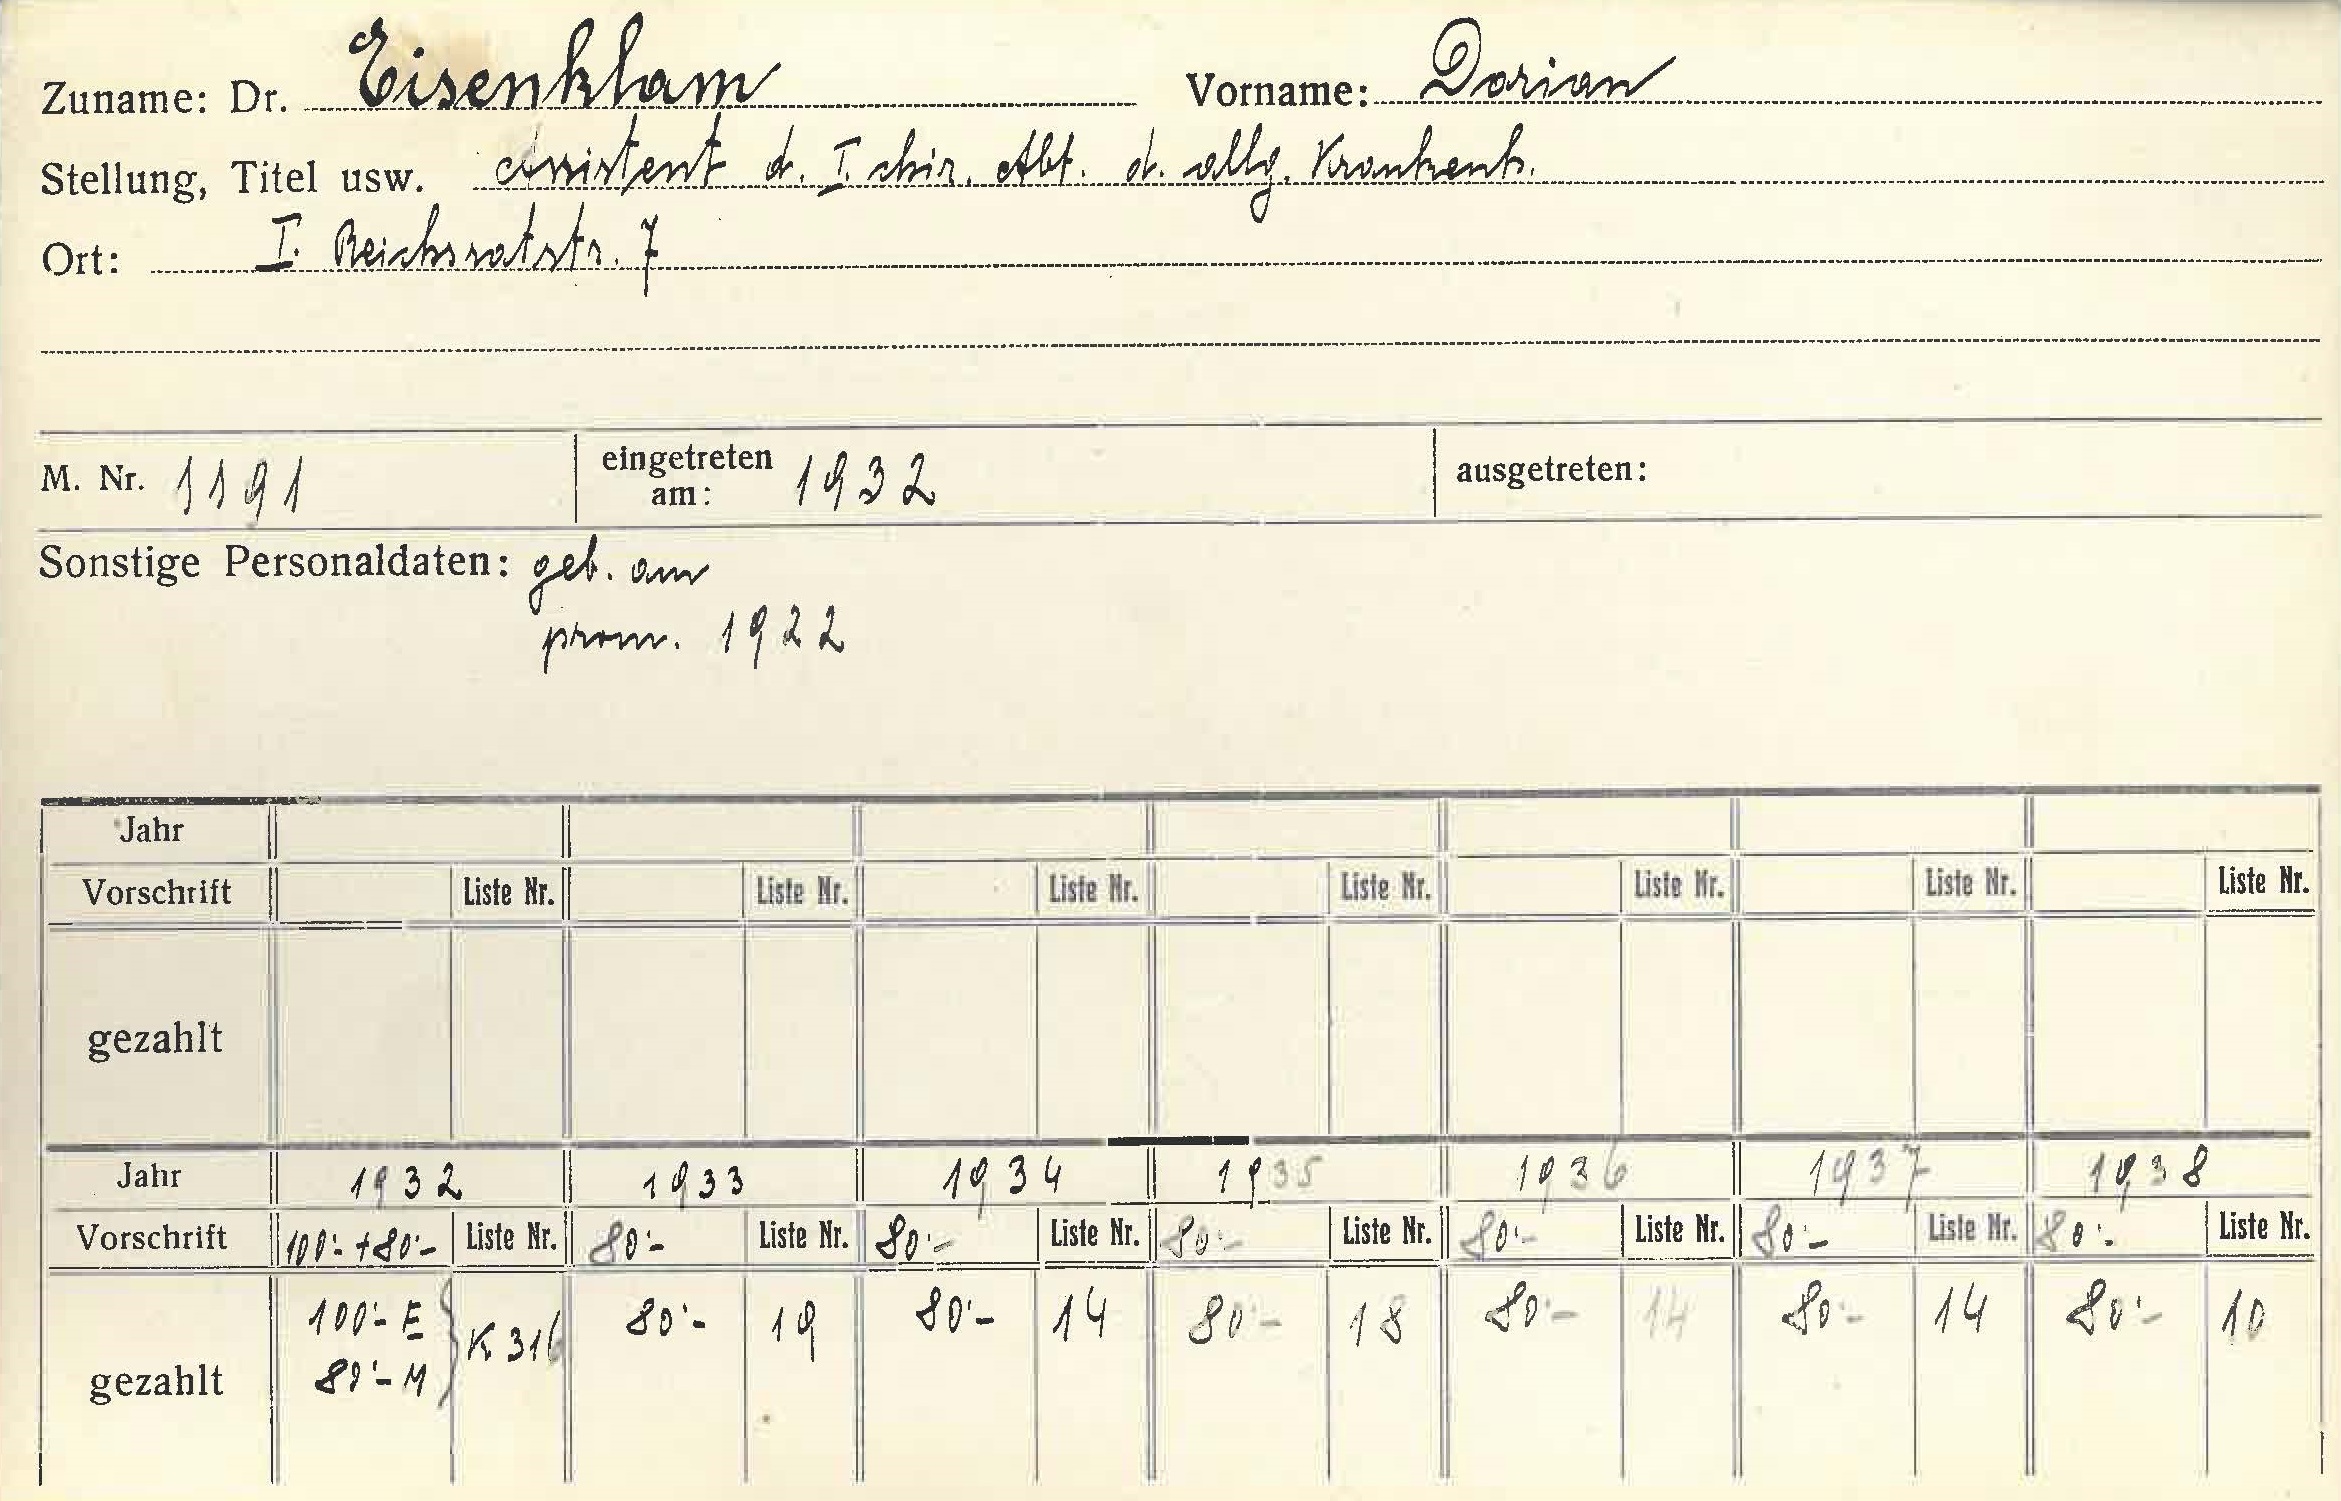 Zuname: Dr. Eisenklam Vorname: Dorian
Stellung, Titel usw. Assistent d. I. chir. Abt. d. allg. Krankenh.
Ort: I. Reichsratstr. 7
M. Nr. 1191 eingetreten am: 1932 ausgetreten:
Sonstige Personaldaten: geb. am
prom. 1922
Jahr
Vorschrift Liste Nr. Liste Nr. Liste Nr. Liste Nr. Liste Nr. Liste Nr. Liste Nr.
gezahlt
Jahr 1932 1933 1934 1935 1936 1937 1938
Vorschrift 100'- + 80'- Liste Nr. 80'- Liste Nr. 80'- Liste Nr. 80'- Liste Nr. 80'- Liste Nr. 80'- Liste Nr. 80'- Liste Nr.
gezahlt 100'- E 80'- M } K 316 80'- 19 80'- 14 80'- 18 80'- 14 80'- 14 80'- 10